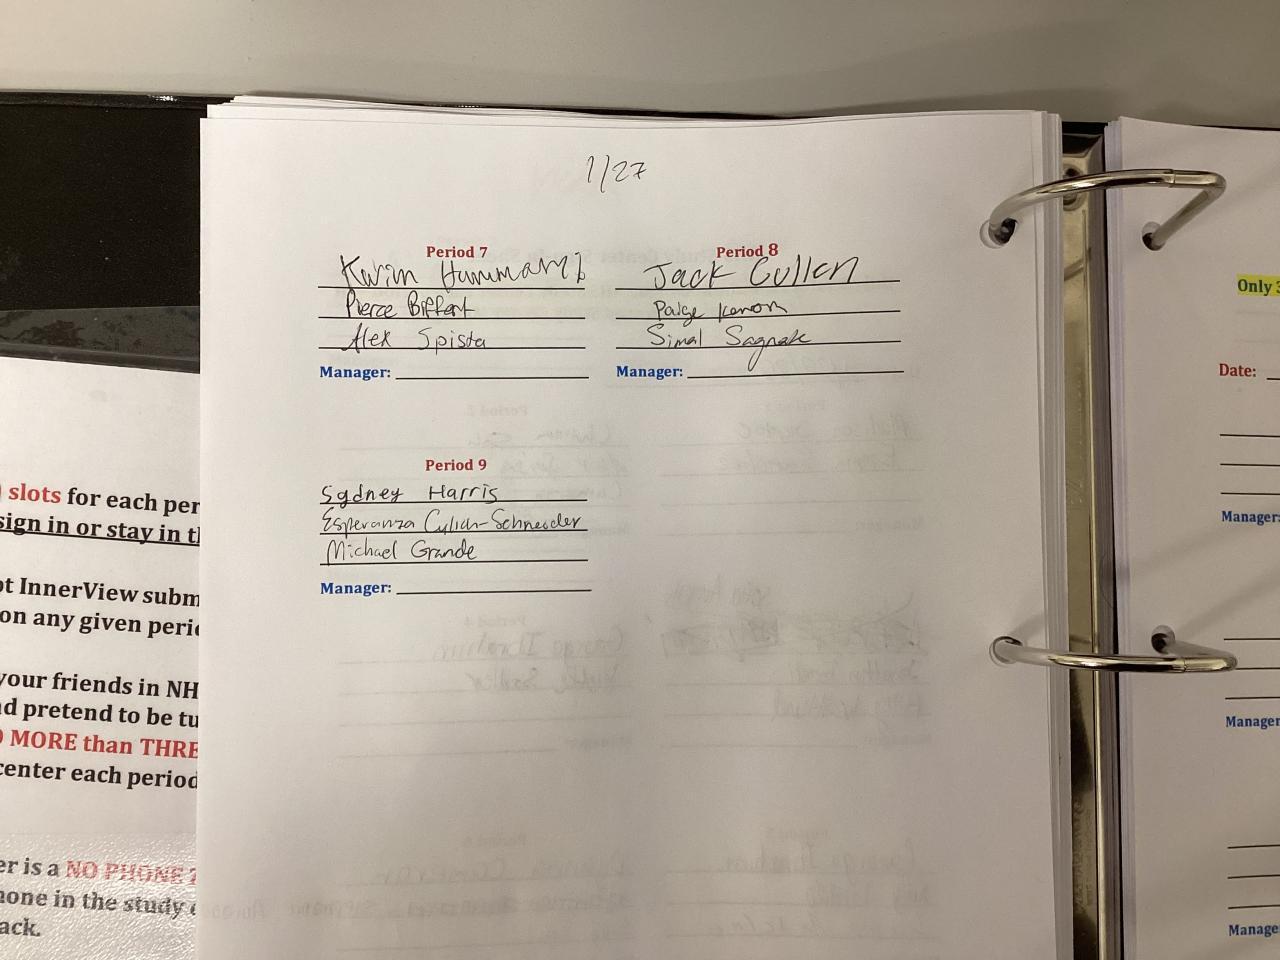 1/27
Period 7
Period 8
Jack Cullen
Pierce Biffert
Paige
Alex Spista
Simal Sagnak
Manager:
Manager:
Period 9
Sydney Harris
Esperanza Culich-Schneider
Michael Grande
Manager:
slots for each per
sign in or stay in t
ot InnerView subm
on any given peri
your friends in NH
nd pretend to be tu
MORE than THRE
center each period
er is a NO PHONE
hone in the study
ack.
Only 3
Date:
Manager:
Manager
Manage